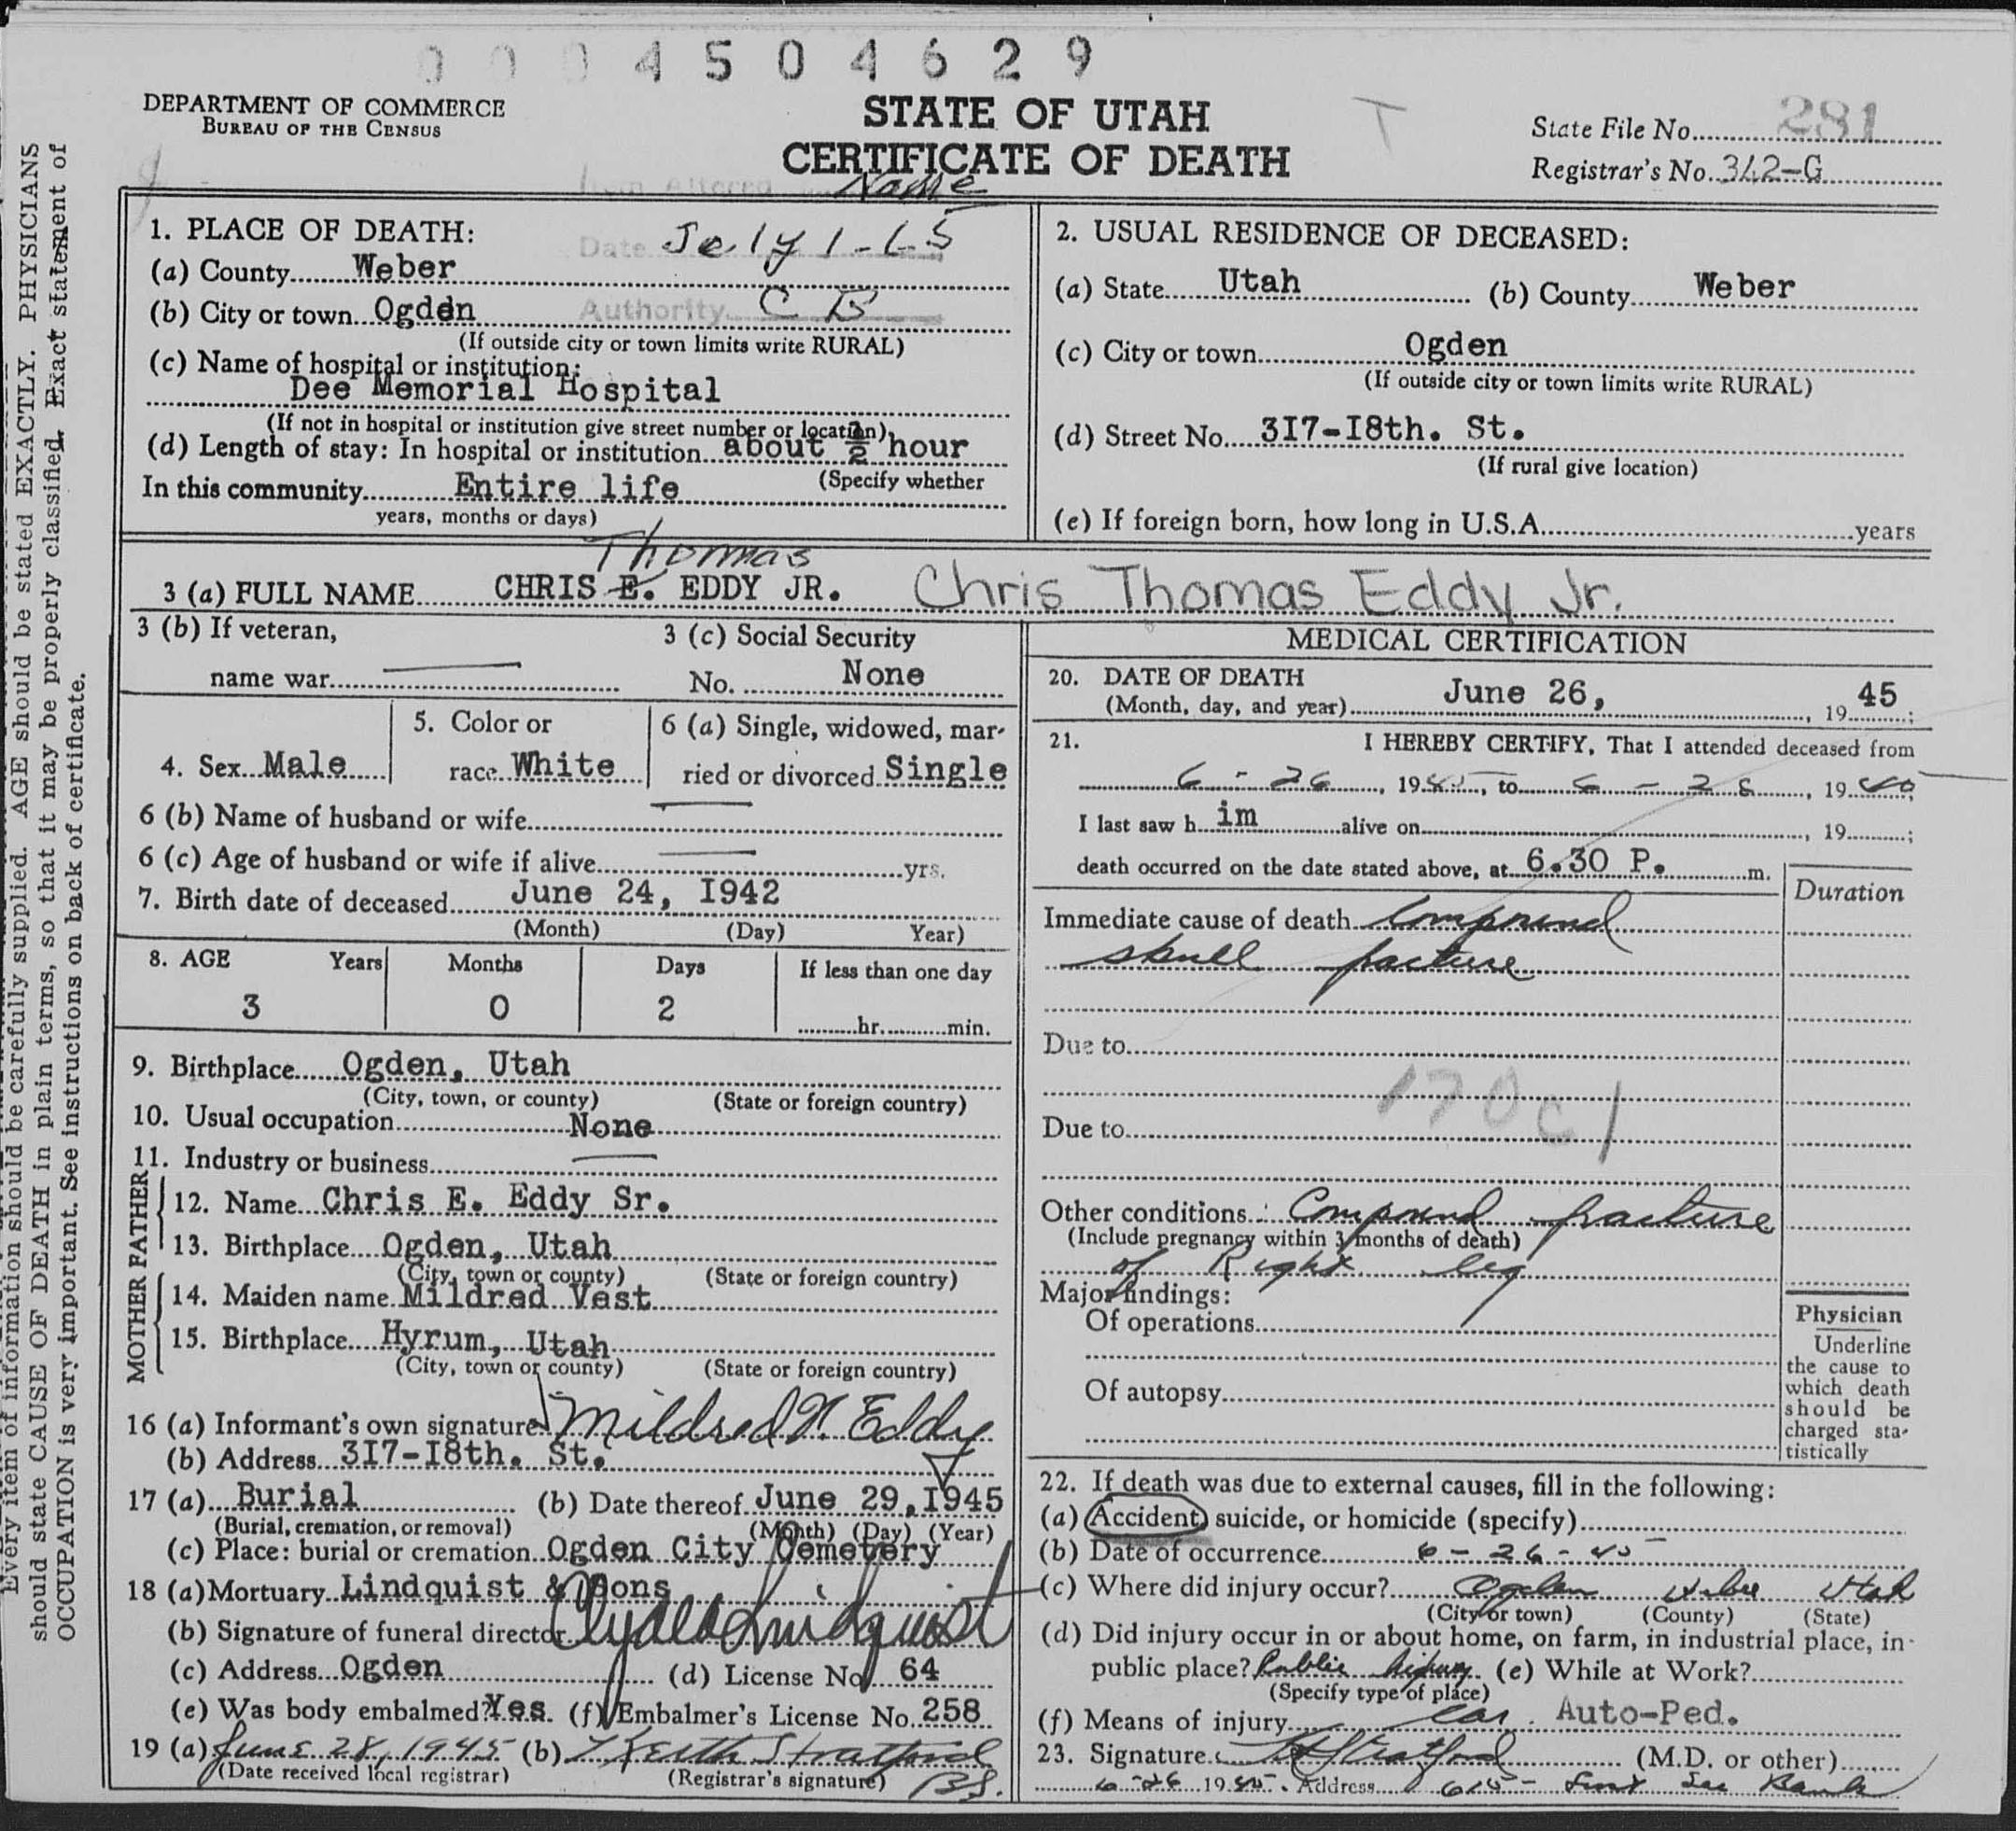 0004504629
DEPARTMENT OF COMMERCE
BUREAU OF THE CENSUS
STATE OF UTAH
CERTIFICATE OF DEATH
T
State File No. 281
Registrar's No. 342-G
Item Altered Name
Date July 1-65
Authority C B
1. PLACE OF DEATH:
(a) County Weber
(b) City or town Ogden
(If outside city or town limits write RURAL)
(c) Name of hospital or institution:
Dee Memorial Hospital
(If not in hospital or institution give street number or location)
(d) Length of stay: In hospital or institution about ½ hour
(Specify whether
In this community Entire life
years, months or days)
2. USUAL RESIDENCE OF DECEASED:
(a) State Utah (b) County Weber
(c) City or town Ogden
(If outside city or town limits write RURAL)
(d) Street No. 3I7-I8th. St.
(If rural give location)
(e) If foreign born, how long in U.S.A. years
Thomas
3 (a) FULL NAME CHRIS E. EDDY JR. Chris Thomas Eddy Jr.
3 (b) If veteran,
name war
3 (c) Social Security
No. None
4. Sex Male
5. Color or
race White
6 (a) Single, widowed, mar-
ried or divorced Single
6 (b) Name of husband or wife
6 (c) Age of husband or wife if alive yrs.
7. Birth date of deceased June 24, I942
(Month) (Day) Year)
8. AGE Years Months Days If less than one day
3 0 2 hr. min.
9. Birthplace Ogden, Utah
(City, town, or county) (State or foreign country)
10. Usual occupation None
11. Industry or business
FATHER
12. Name Chris E. Eddy Sr.
13. Birthplace Ogden, Utah
(City, town or county) (State or foreign country)
MOTHER
14. Maiden name Mildred Vest
15. Birthplace Hyrum, Utah
(City, town or county) (State or foreign country)
16 (a) Informant's own signature Mildred V. Eddy
(b) Address 3I7-I8th. St.
17 (a) Burial (b) Date thereof June 29, I945
(Burial, cremation, or removal) (Month) (Day) (Year)
(c) Place: burial or cremation Ogden City Cemetery
18 (a) Mortuary Lindquist & Sons
(b) Signature of funeral director Lindquist
(c) Address Ogden (d) License No. 64
(e) Was body embalmed? Yes. (f) Embalmer's License No. 258
19 (a) June 28, 1945 (b) Keith Stratford
(Date received local registrar) (Registrar's signature) BS.
MEDICAL CERTIFICATION
20. DATE OF DEATH
(Month, day, and year) June 26, 1945;
21. I HEREBY CERTIFY, That I attended deceased from
6-26, 1945, to 19
I last saw him alive on , 19 ;
death occurred on the date stated above, at 6.30 P. m.
Duration
Immediate cause of death Compound
skull fracture
Due to
170c1
Due to
Other conditions Compound fracture
(Include pregnancy within 3 months of death)
of Right leg
Major findings:
Of operations
Of autopsy
Physician
Underline
the cause to
which death
should be
charged sta-
tistically
22. If death was due to external causes, fill in the following:
(a) Accident, suicide, or homicide (specify)
(b) Date of occurrence 6-26-45
(c) Where did injury occur? Ogden Weber Utah
(City or town) (County) (State)
(d) Did injury occur in or about home, on farm, in industrial place, in
public place? Public highway. (e) While at Work?
(Specify type of place)
(f) Means of injury Car. Auto-Ped.
23. Signature Stratford (M.D. or other)
6-26 1945. Address
Every item of information should be carefully supplied. AGE should be stated EXACTLY. PHYSICIANS
should state CAUSE OF DEATH in plain terms, so that it may be properly classified. Exact statement of
OCCUPATION is very important. See instructions on back of certificate.